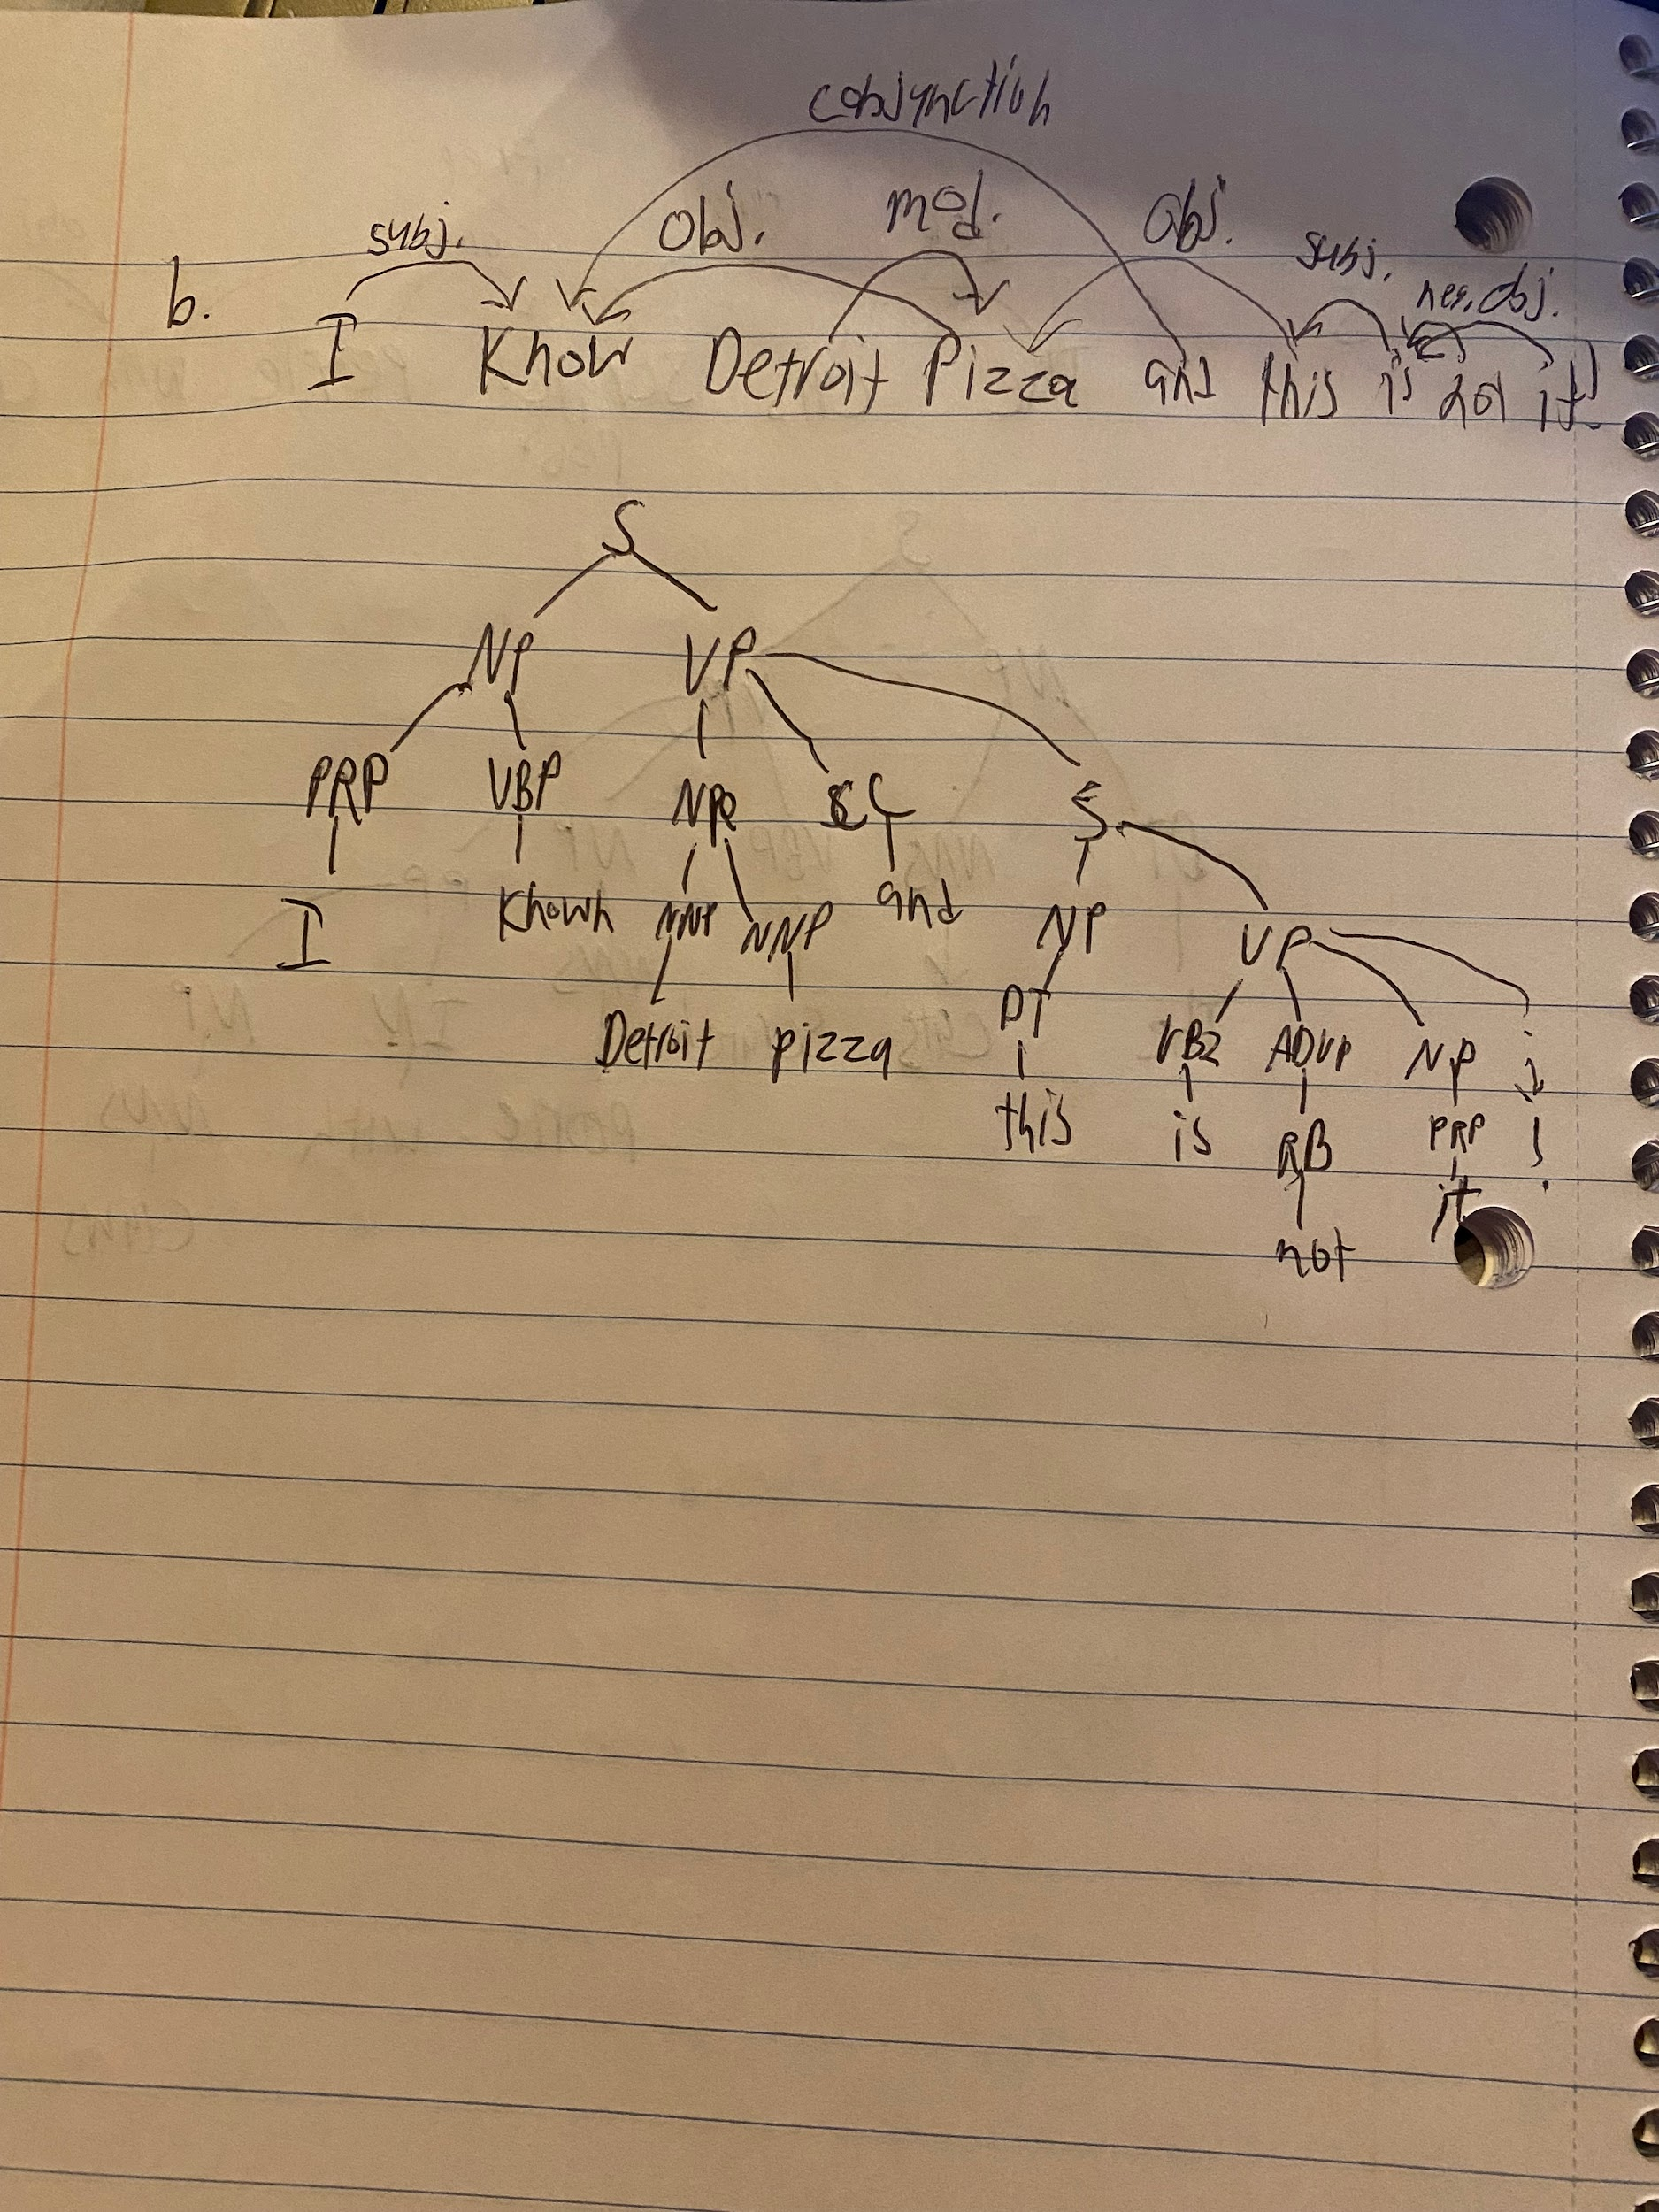 conjunction
subj. obj. mod. obj. subj. neg. obj.
b. I Know Detroit Pizza and this is not it!
S
NP VP
PRP VBP NP CC S
I Known NNP NNP and NP VP
Detroit pizza DT VBZ ADVP NP .
this is RB PRP !
not it